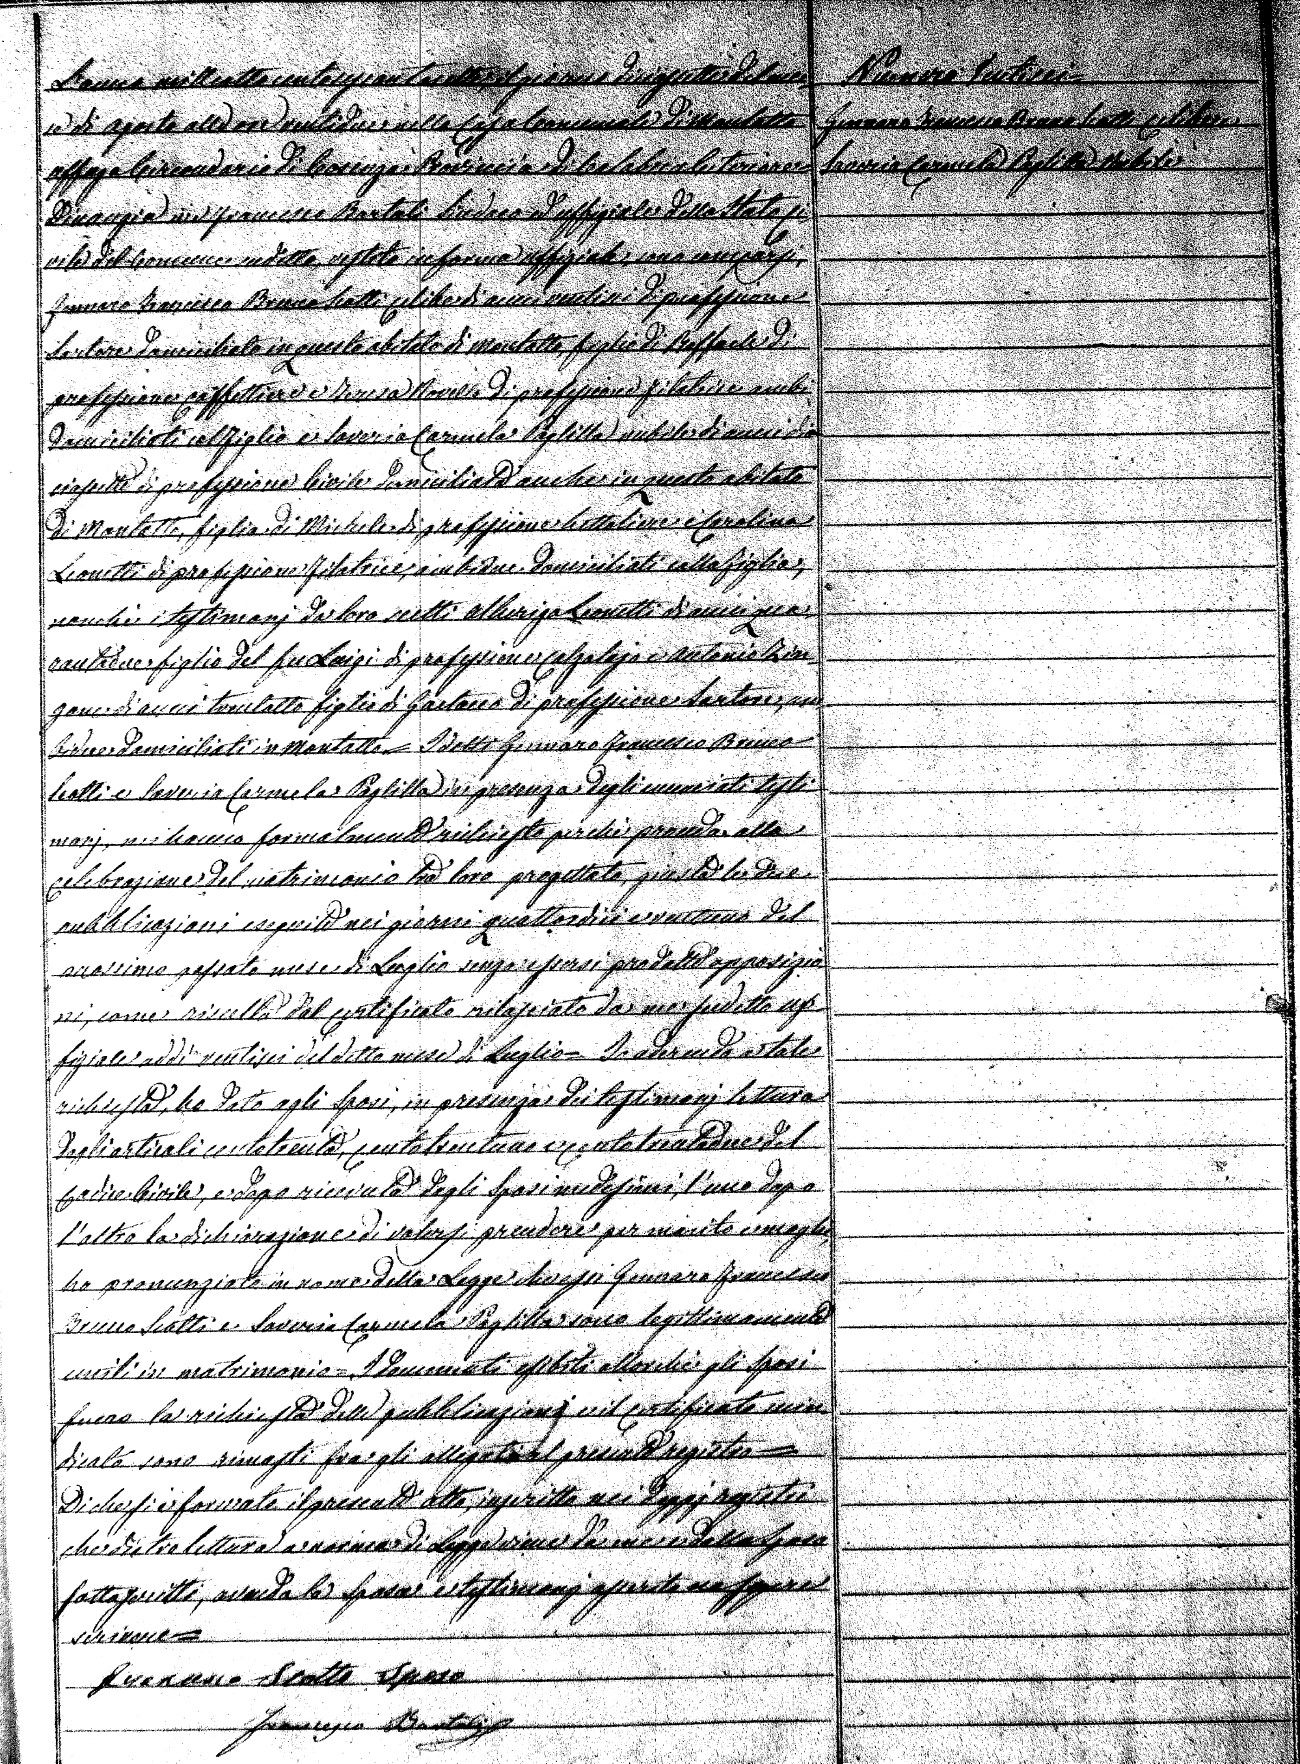 L'anno mille otto cento sessantasette, il giorno diciassette del me
se di agosto alle ore ventidue nella Casa Comunale di Montalto
uffugo Circondario di Cosenza Provincia di Calabria Citeriore
Dinanzi a me Francesco Bartoli Sindaco ed uffiziale dello Stato Ci
vile del Comune indetto, vestito in forma uffiziale, sono comparsi,
Gennaro Francesco Bruno Scotti, celibe di anni ventisei di professione
Sartore domiciliato in questo abitato di Montalto, figlio di Raffaele di
professione caffettiere e Teresa di professione filatrice ambi
domiciliati col figlio e Saveria Carmela Paglilla nubile di anni di
ciassette di professione Civile domiciliata anche in questo abitato
di Montalto, figlia di Michele di professione bottaliere e Carolina
Leonetti di professione filatrice, ambedue domiciliati colla figlia,
nonchè i testimonj da loro scelti Alberigo Leonetti di anni qua
rantadue figlio del fu Luigi di professione calzolajo e Antonio Zin
gone di anni trentotto figlio di Gaetano di professione Sartore, am
bidue domiciliati in Montalto = I detti Gennaro Francesco Bruno
Scotti e Saveria Carmela Paglilla in presenza degli enunciati testi
monj, mi hanno formalmente richiesto perchè proceda alla
celebrazione del matrimonio tra loro progettato, giusta le due
pubblicazioni eseguite nei giorni quattordici e ventuno del
prossimo passato mese di Luglio senza essersi prodotte opposizio
ni, come risulta dal certificato rilasciato da me sudetto uf
fiziale addì ventisei del detto mese di Luglio = Io aderendo a tale
richiesta, ho dato agli sposi, in presenza dei testimonj lettura
degli articoli centotrenta, centotrentuno e centotrentadue del
Codice Civile, e dopo ricevuta dagli Sposi medesimi, l'uno dopo
l'altro la dichiarazione di volersi prendere per marito e moglie,
ho pronunziato in nome della Legge che essi Gennaro Francesco
Bruno Scotti e Saveria Carmela Paglilla sono legittimamente
uniti in matrimonio = I documenti esibiti allorchè gli Sposi
fecero la richiesta delle pubblicazioni nel certificato men
dicato sono rimasti fra gli allegati al presente registro =
Di che si è formato il presente atto, inscritto nei doppj registri
che dietro lettura a norma di Legge viene da me e dallo Sposo
sottoscritto, avendo la Sposa e testimonj asserito non sapere
scrivere =
Francesco Scotti Sposo
Francesco Bartoli
Numero Ventisei =
Gennaro Francesco Bruno Scotti celibe
Saveria Carmela Paglilla Nubile